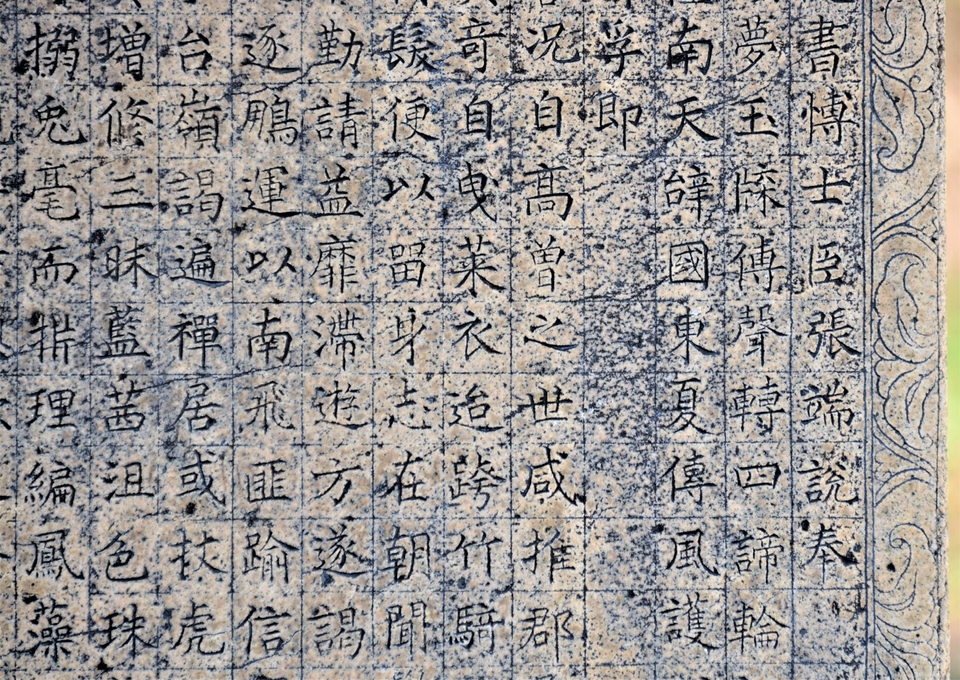 書博士臣張端說奉
夢玉傳聲轉四諦輪
南天辭國東夏傳風護
孚即
况自高曾之世咸推郡
奇自曳萊衣迨跨竹騎
髮便以留身志在朝聞
勤請益靡滯遊方遂謁
逐鵬運以南飛匪踰信
台嶺謁遍禪居或扙虎
增修三昧藍茜沮色珠
搦兔毫而理編鳳藻